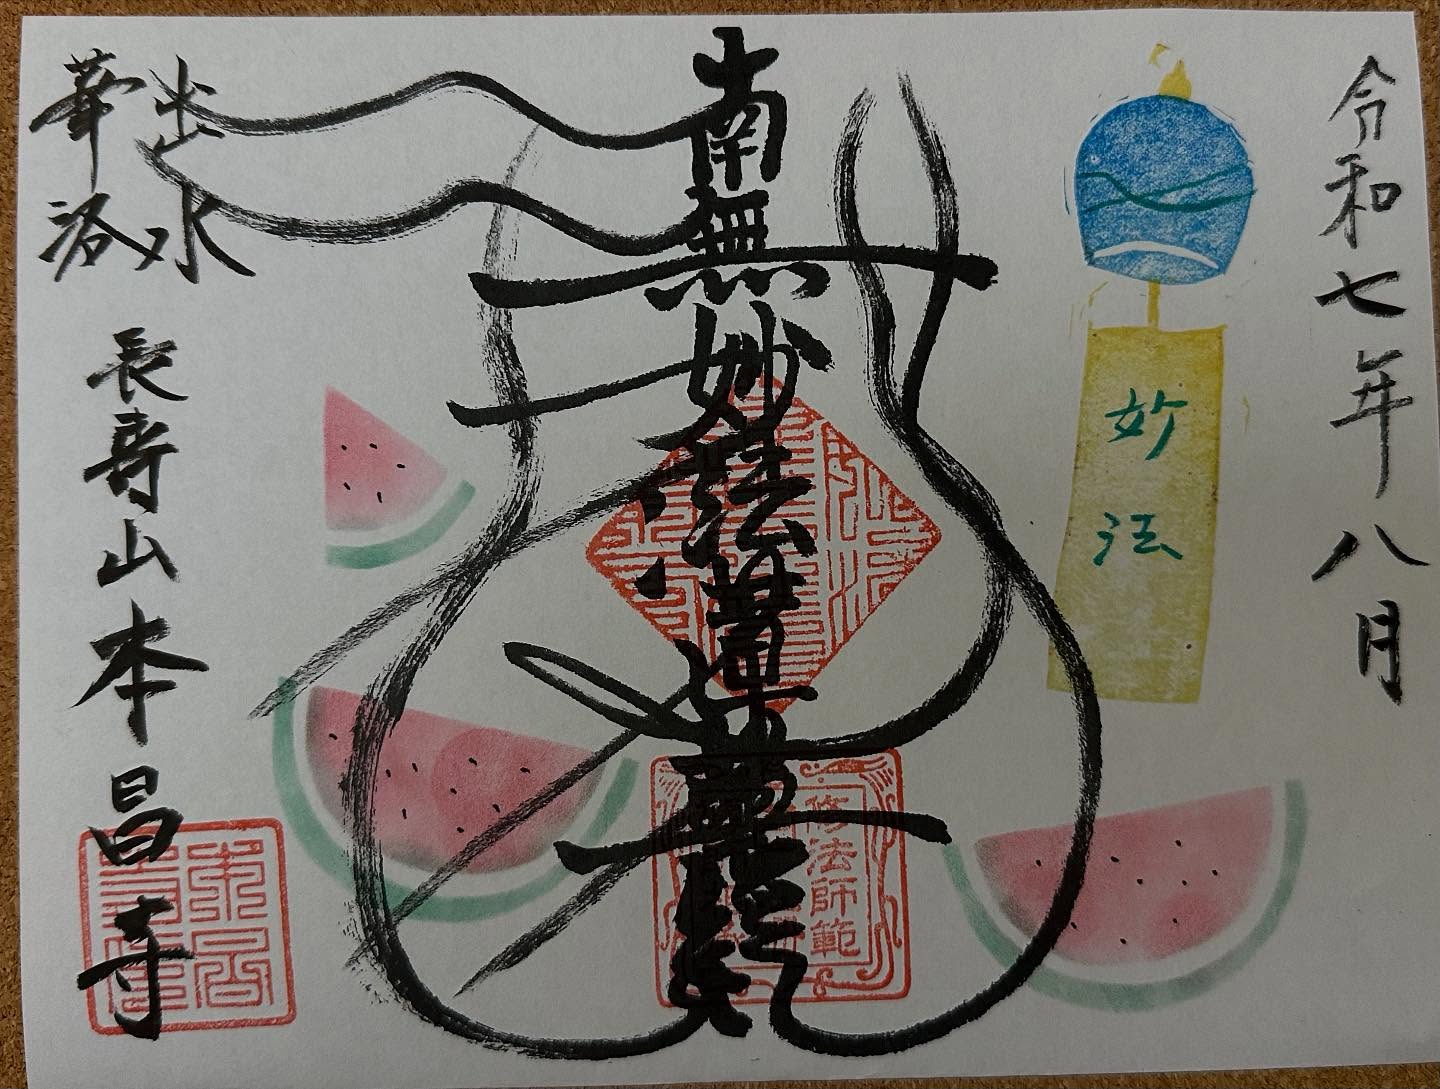 令和七年八月
妙法
南無妙法蓮華経
修法師範
出水
華洛
長壽山本昌寺